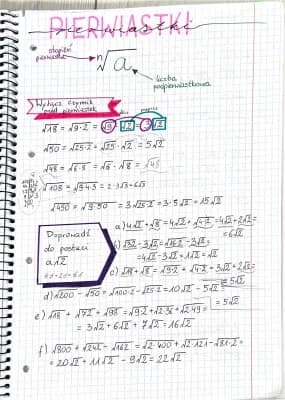 PIERWIASTKI
pierwiastki
stopień
pierwiastka
ⁿ√a
liczba
podpierwiastkowa
Wyłącz czynnik
przed pierwiastek
√18 = √9·2 = √9·√2 = 3√2
√50 = √25·2 = √25·√2 = 5√2
√48 = √6·8 = √6·√8 = √48
√108 = √9·4·3 = 2·3√3 = 6√3
√450 = √9·50 = 3√25·2 = 3·5√2 = 15√2
Doprowadź
do postaci
a√2
a) 4√2 + √8 = 4√2 + √4·2 = 4√2 + 2√2 =
= 6√2
b) √32 - 3√2 = √16·2 - 3√2 =
= 4√2 - 3√2 = 1√2 = √2
c) √18 + √8 = √9·2 + √4·2 = 3√2 + 2√2 =
= 5√2
d) √200 - √50 = √100·2 - √25·2 = 10√2 - 5√2
= 5√2
e) √18 + √72 + √98 = √9·2 + √2·36 + √2·49 =
= 3√2 + 6√2 + 7√2 = 16√2
f) √800 + √242 - √162 = √2·400 + √2·121 - √81·2 =
= 20√2 + 11√2 - 9√2 = 22√2